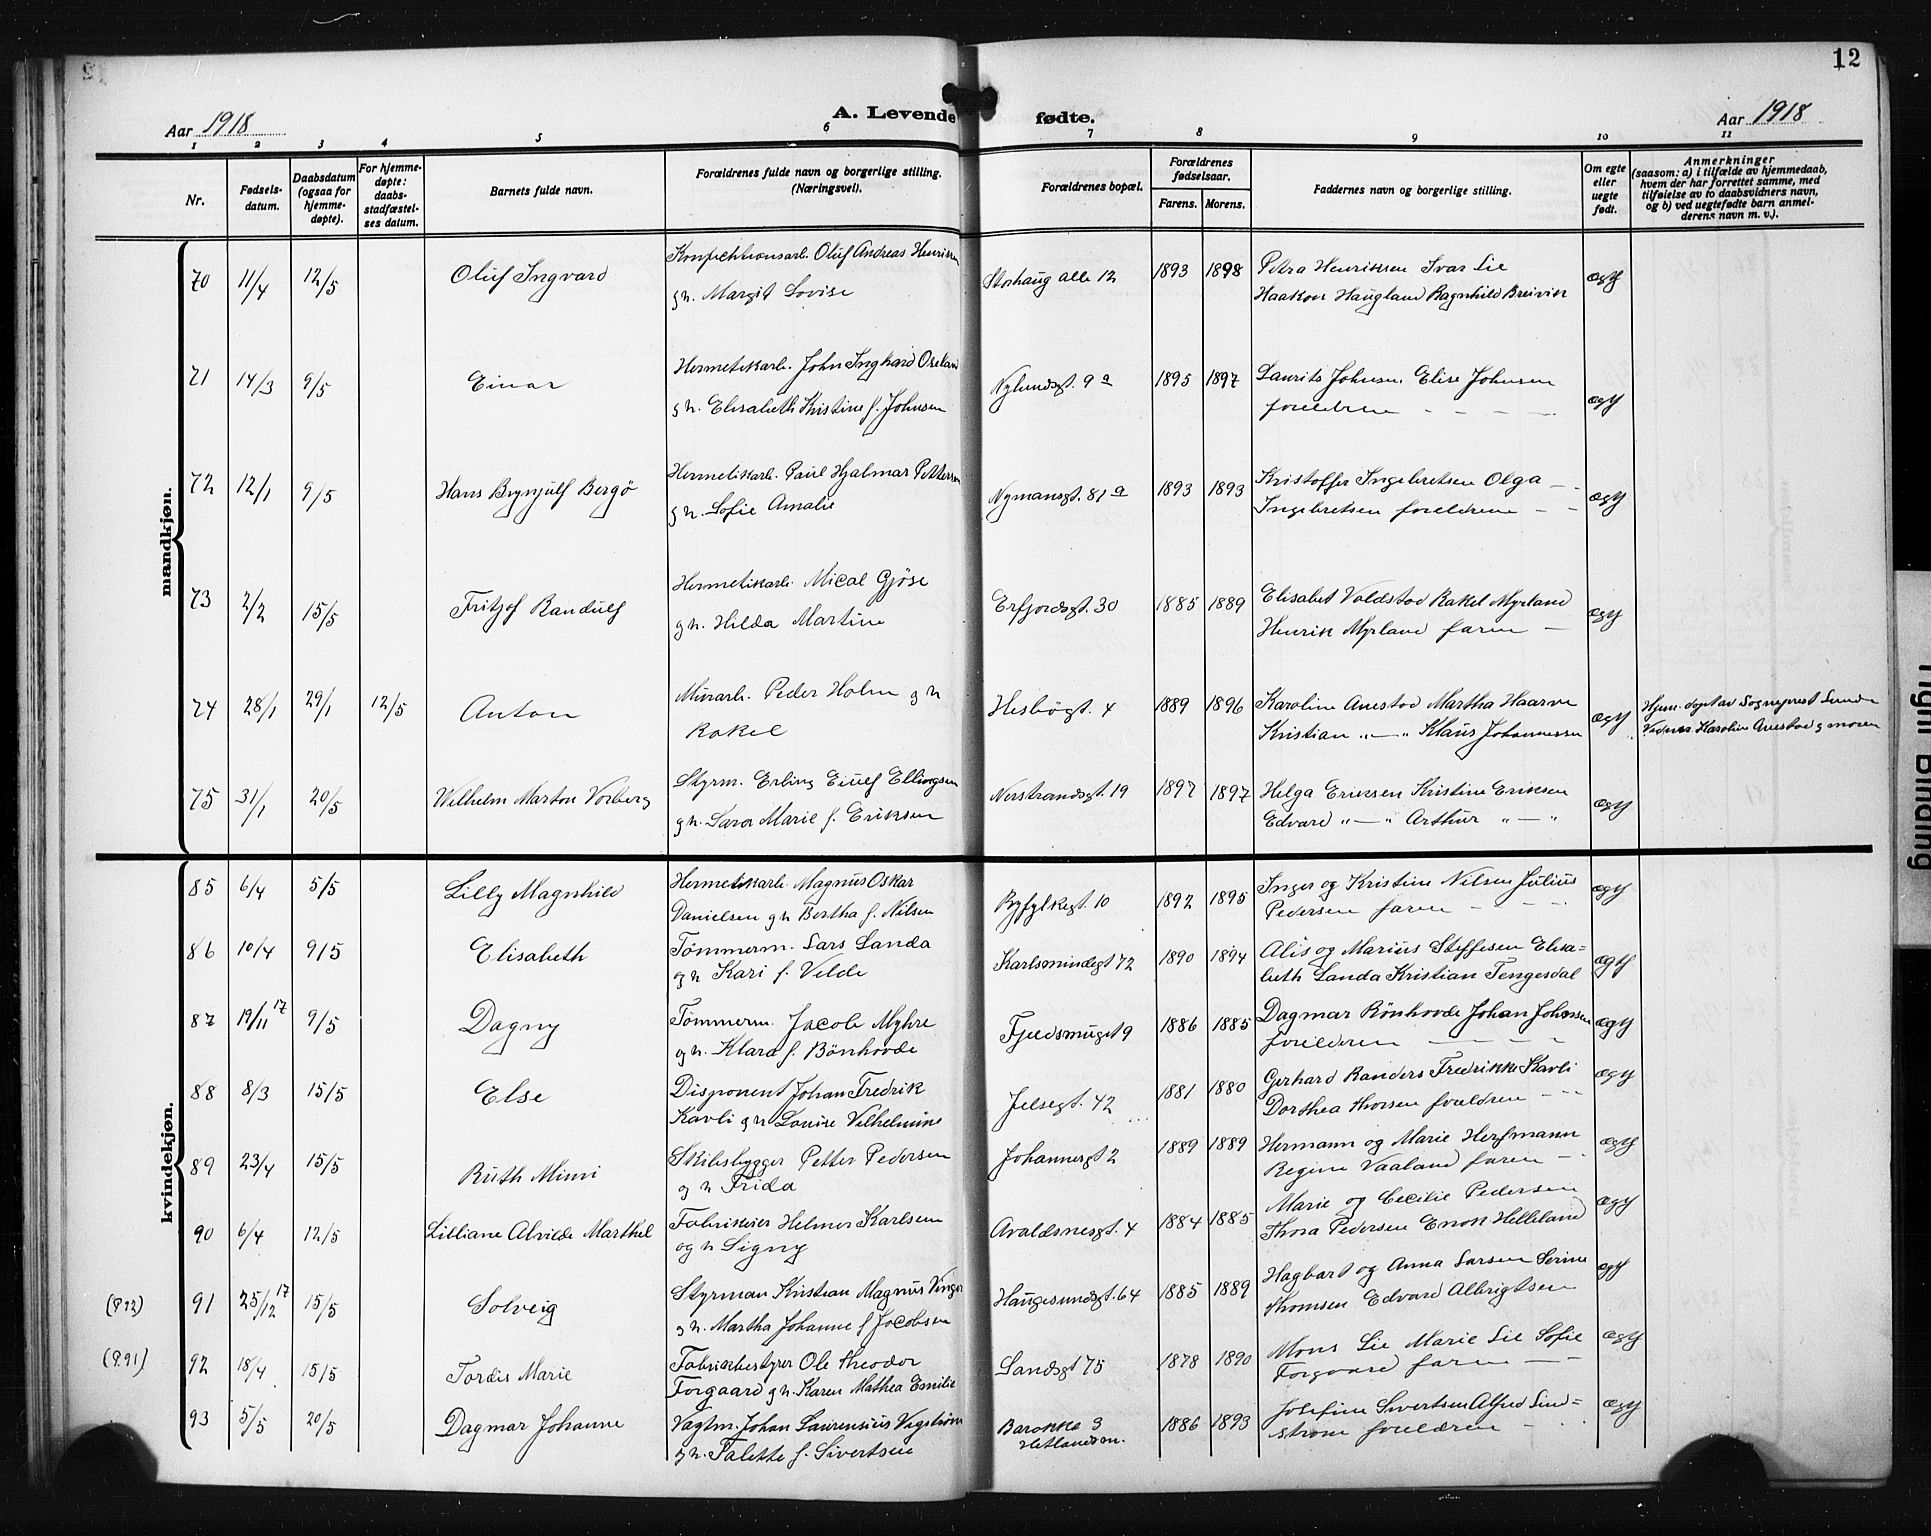 12
Aar 1918
A. Levende fødte.
Aar 1918
1 2 3 4 5 6 7 8 9 10 11
Nr.
Fødsels-
datum.
Daabsdatum
(ogsaa for
hjemme-
døpte).
For hjemme-
døpte:
daabs-
stadfæstel-
ses datum.
Barnets fulde navn.
Forældrenes fulde navn og borgerlige stilling.
(Næringsvei).
Forældrenes bopæl.
Forældrenes
fødselsaar.
Farens. Morens.
Faddernes navn og borgerlige stilling.
Om egte
eller
uegte
født.
Anmerkninger
(saasom: a) i tilfælde av hjemmedaab,
hvem der har forrettet samme, med
tilføielse av to daabsvidners navn,
og b) ved uegtefødte barn anmel-
derens navn m. v.).
mandkjøn.
70 11/4 12/5 Oluf Ingvard
Konfektionsarb. Oluf Andreas Henriksen
g h. Margit Lovise
Storhaug alle 12 1893 1898
Petra Henriksen Ivar Lie
Haakon Haugland Ragnhild Breivik
ægt
71 14/3 9/5 Einar
Hermetikarb. John Ingvard Oseland
g h. Elisabeth Kristine f. Johnsen
Nylundsgt. 9 a 1895 1897
Laurits Johnsen. Elise Johnsen
foreldrene - - - -
ægt
72 12/1 9/5 Hans Brynjulf Bergö
Hermetikarb. Paul Hjalmar Petterson
g h. Sofie Amalie
Nymansgt. 81 a 1893 1893
Kristoffer Ingebretsen Olga - -
Ingebretsen foreldrene - -
ægt
73 2/2 15/5 Fritjof Randulf
Hermetikarb. Mical Gjöse
g h. Hilda Martine
Erfjordsgt. 30 1885 1889
Elisabet Voldstad Rakel Myrland
Henrik Myrland faren -
ægt
74 28/1 29/1 12/5 Anton
Murarb. Peder Holm g h
Rakel
Hesbögt. 4 1889 1896
Karoline Anestad Martha Haarve
Kristian „ — „ Klaus Johannessen
ægt
Hjem. døpt av Sogneprest Lunde
Vidner Karoline Anestad g moren
75 31/1 20/5 Wilhelm Marton Vorberg
Styrm. Erling Eiulf Ellingsen
g h. Sara Marie f. Eriksen
Nerstrandsgt. 19 1897 1897
Helga Eriksen Kristine Eriksen
Edvard „ — „ Arthur „ — „
ægt
kvindekjøn.
85 6/4 5/5 Lilly Magnhild
Hermetikarb. Magnus Oskar
Danielsen g h Bertha f. Nilsen
Ryfylkegt. 10 1892 1895
Inger og Kristine Nilsen Julius
Pedersen faren - - -
ægt
86 10/4 9/5 Elisabeth
Tömmerm. Lars Landa
og h Kari f. Velde
Karlsmindegt 72 1890 1894
Alis og Marius Steffesen Elisa=
beth Landa Kristian Tengesdal
ægt
87 19/11 17 9/5 Dagny
Tömmerm. Jacob Myhre
og h. Klara f. Bönhovde
Fjeldsmuget 9 1886 1885
Dagmar Rönhovde Johan Johnsen
foreldrene - - - -
ægt
88 8/3 15/5 Else
Disponent Johan Fredrik
Kavli g h Louise Vilhelmine
Jelsegt. 42 1881 1880
Gerhard Randers Fredrikke Kavli
Dorthea Thorsen foreldrene - - -
ægt
89 23/4 15/5 Ruth Mimi
Skibsbygger Petter Pedersen
og h Frida
Johannesgt 2 1889 1889
Hermann og Marie Herfmann
Regine Vaaland faren - -
ægt
90 6/4 12/5 Lilliane Alvilde Marthel
Fabrikeier Helmer Karlsen
og h Signy
Avaldsnesgt. 4 1884 1885
Marie og Cecilie Pedersen
Thora Pedersen Enok Helleland
ægt
(9.92) 91 25/12 17 15/5 Solveig
Styrman Kristian Magnus Vinger
g h. Martha Johanne f Jacobsen
Haugesundsgt. 64 1885 1889
Hagbart og Anna Larsen Serine
Thomsen Edvard Albrigtsen
ægt
(9.91) 92 18/4 15/5 Tordis Marie
Fabrikbestyrer Ole Theodor
Torgaard g h. Karen Mathea Emilie
Sandsgt 75 1878 1890
Mons Lie Marie Lie Sofie
Torgaard faren - -
ægt
93 5/5 20/5 Dagmar Johanne
Vagtm. Johan Laurensius Vegström
g h. Talette f. Sivertsen
Barakke 3
Hetlandsm.
1886 1893
Josefine Sivertsen Alfred Lind=
strøm foreldrene - -
ægt